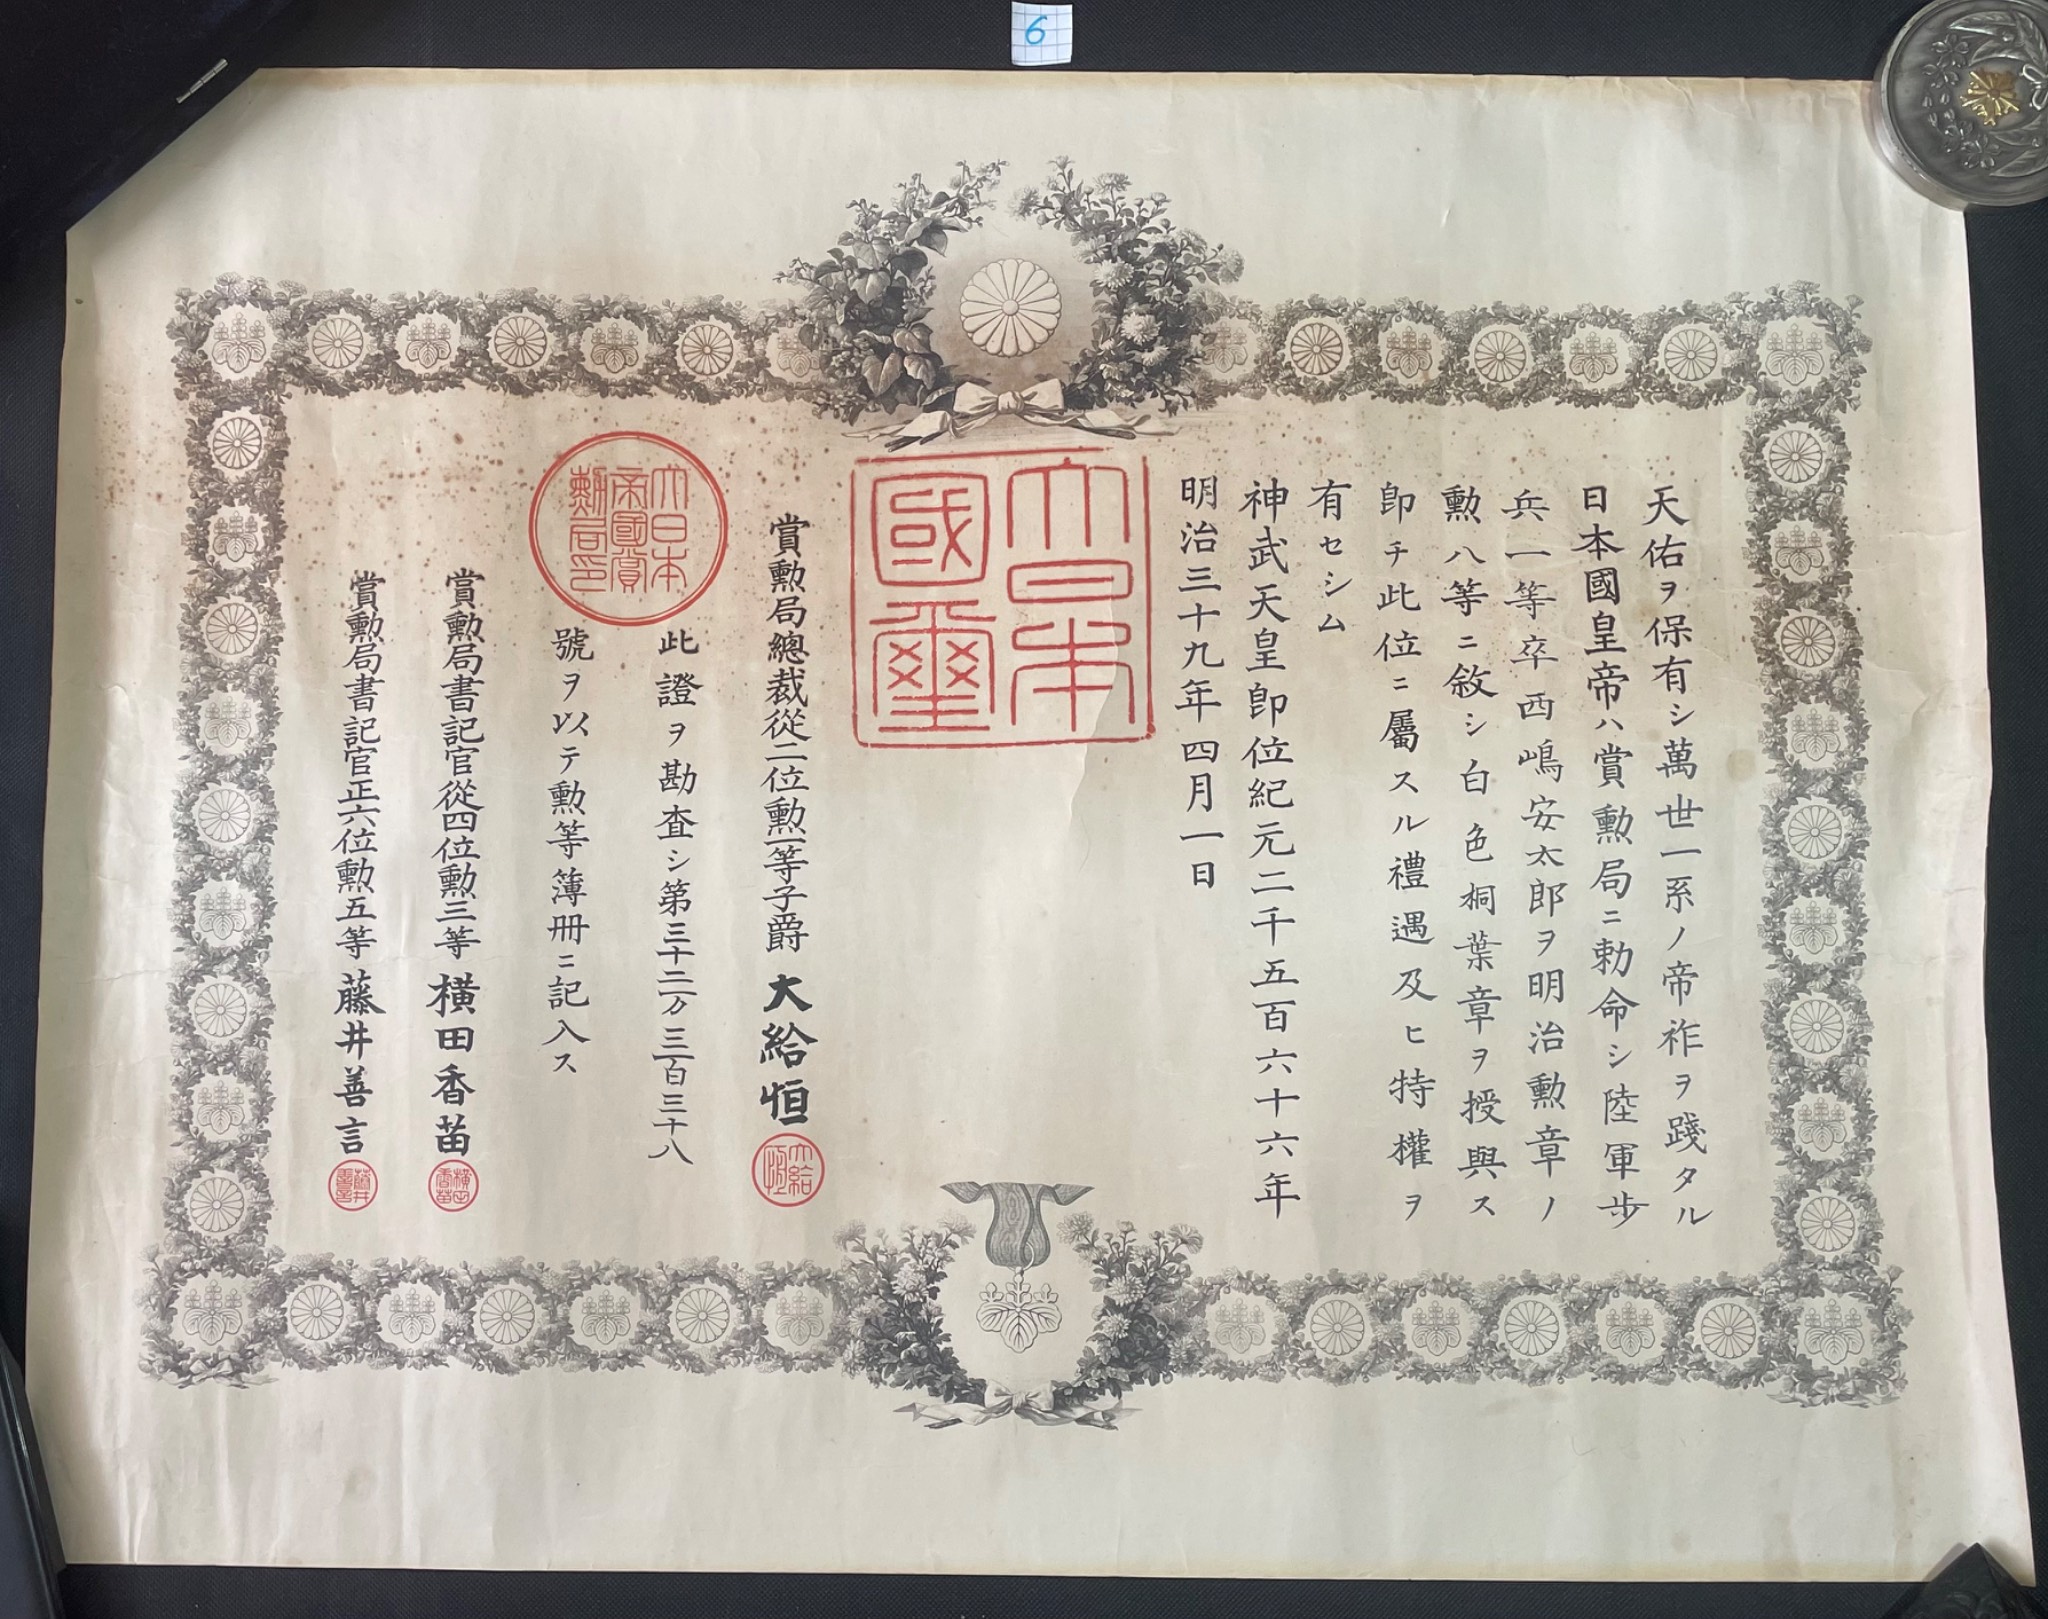 6
天佑ヲ保有シ萬世一系ノ帝祚ヲ踐タル
日本國皇帝ハ賞勲局ニ勅命シ陸軍歩
兵一等卒西嶋安太郎ヲ明治勲章ノ
勲八等ニ敘シ白色桐葉章ヲ授與ス
卽チ此位ニ屬スル禮遇及ヒ特權ヲ
有セシム
神武天皇卽位紀元二千五百六十六年
明治三十九年四月一日
大日本
國璽
賞勲局總裁從二位勲一等子爵大給恒
大給
恒
大日本
帝國賞
勲局印
此證ヲ勘査シ第三十二万三百三十八
號ヲ以テ勲等簿冊ニ記入ス
賞勲局書記官從四位勲三等橫田香苗
橫田
香苗
賞勲局書記官正六位勲五等藤井善言
藤井
善言